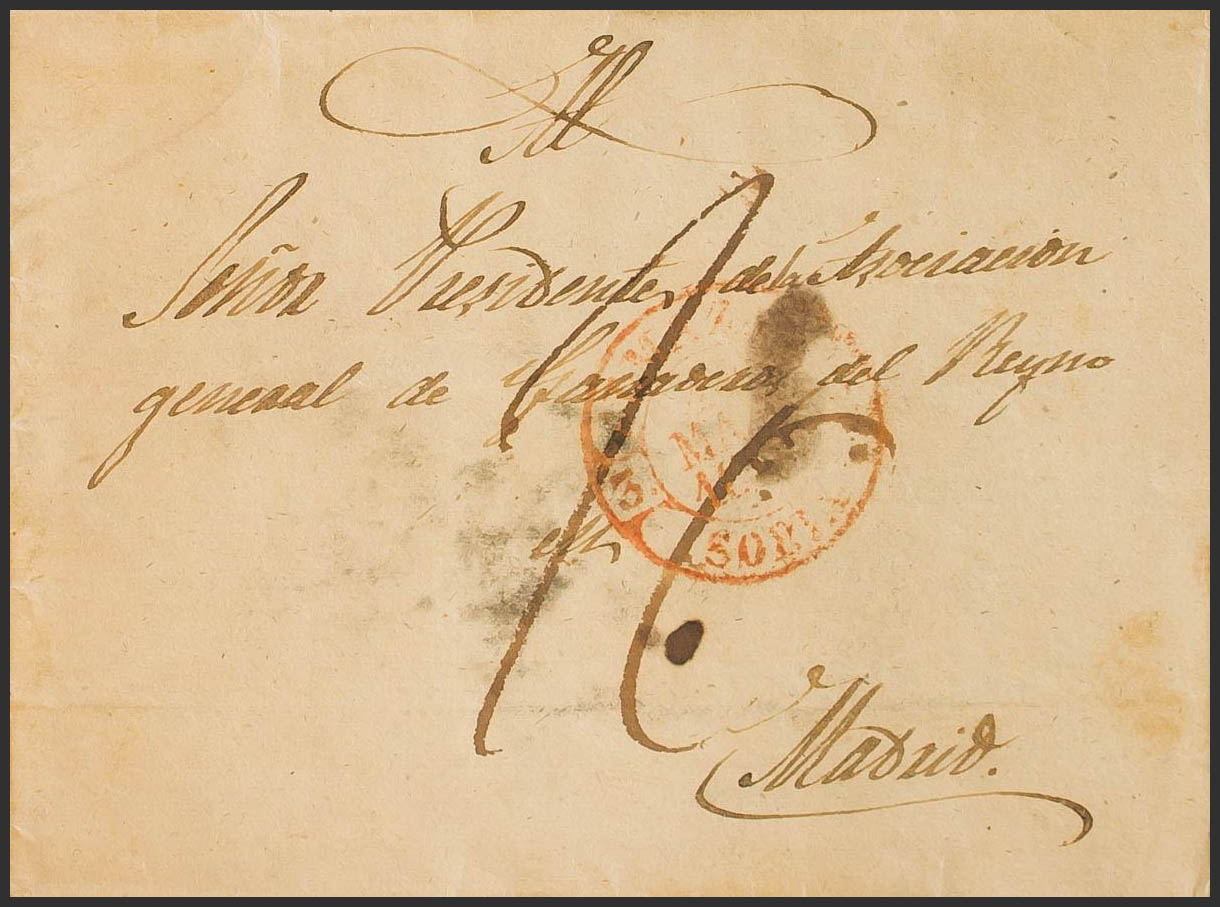 Al
Señor Presidente de la Asociacion
general de Ganaderos del Reyno
en
Madrid.
3
SORIA